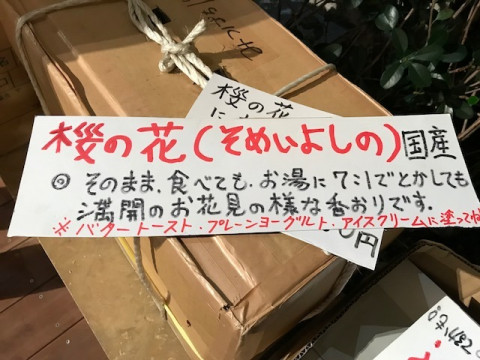 桜の花(そめいよしの)国産
◎ そのまま、食べても、お湯に7:1でとかしても
満開のお花見の様な香おりです。
※バタートースト・プレーンヨーグルト・アイスクリームに塗って
桜の花
に
円